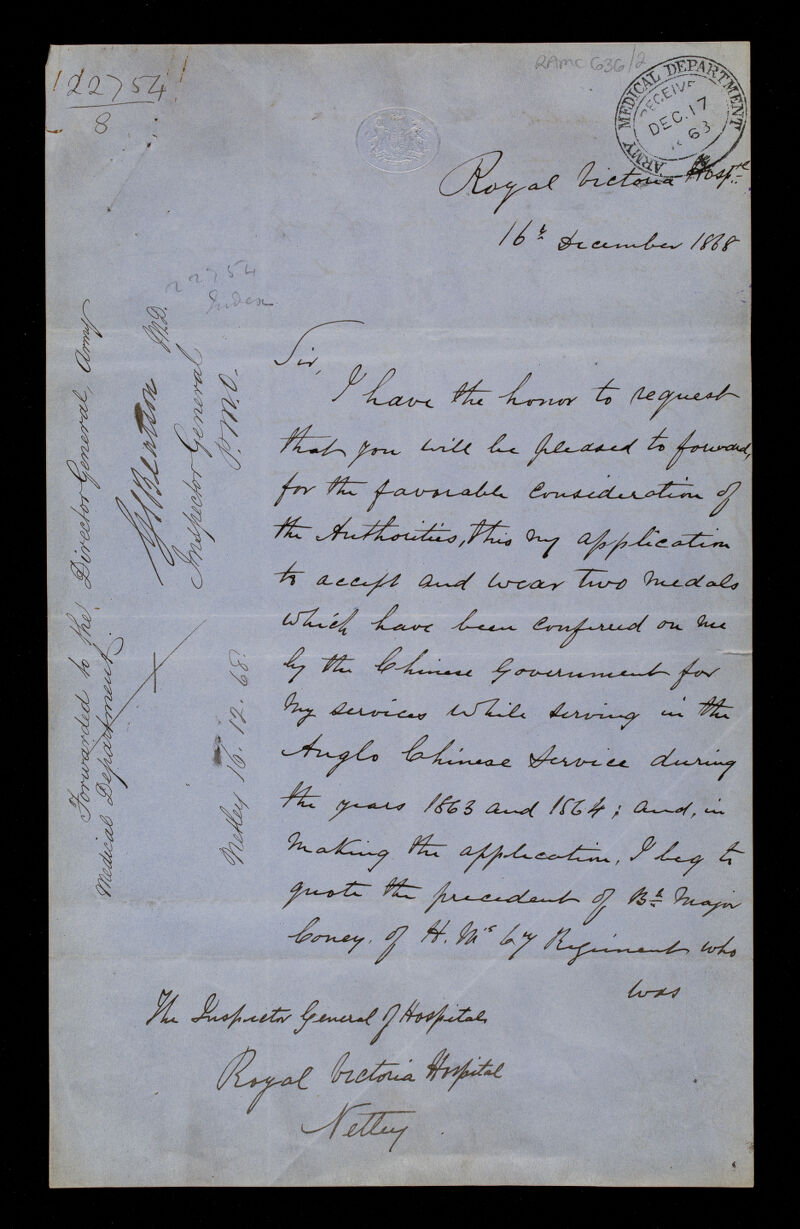 22754
8
RAMC 636/2
ARMY MEDICAL DEPARTMENT
RECEIVE
DEC. 17
63
Royal Victoria Hospl.
16th December 1868
22754
Index
Sir,
I have the honor to request
that you will be pleased to forward,
for the favorable consideration of
the Authorities, this my application
to accept and wear two medals
which have been conferred on me
by the Chinese Government for
my services while serving in the
Anglo Chinese Service during
the years 1863 and 1864; and, in
making the application, I beg to
quote the precedent of Bt. Major
Coney. of H. Ms 67 Regiment who
was
The Inspector General of Hospitals
Royal Victoria Hospital
Netley
Forwarded to the Director General, Army
Medical Department.
M.D.
Inspector General
P.M.O.
Netley 16. 12. 68.